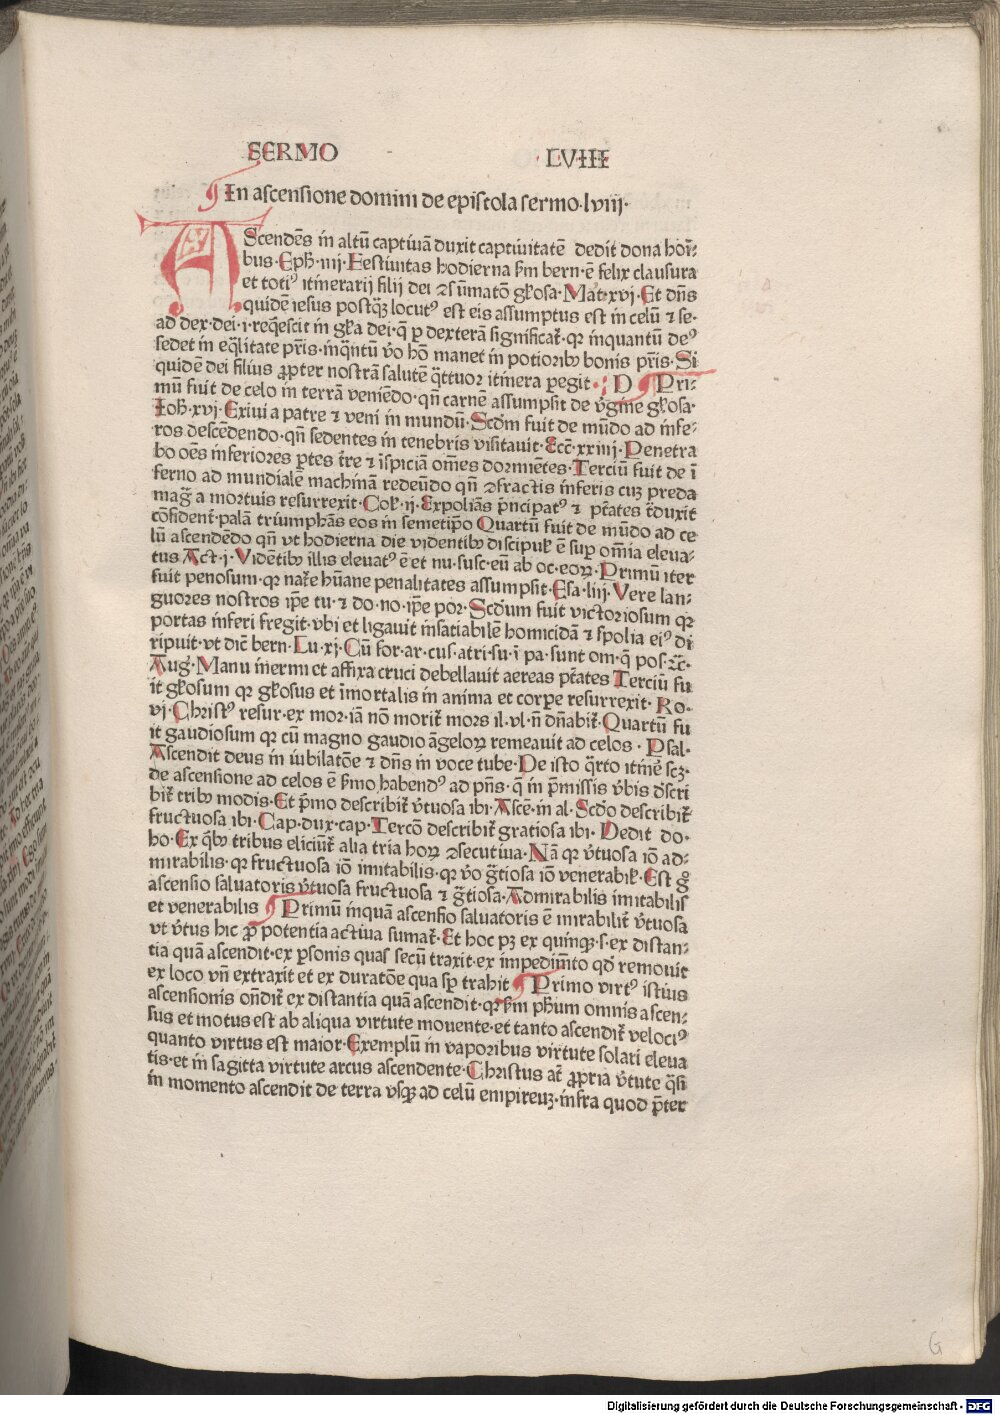 SERMO LVIII
In ascensione domini de epistola sermo·lviij·
AScendēs in altū captiuā duxit captiuitatē dedit dona hoī-
bus·Eph̄·iiij·Festiuitas hodierna s̄m bern·ē felix clausura
et totiꝰ itinerarij filij dei ⁊ꝯsūmatō gl̄osa·Mat̄·xvj·Et dn̄s
quidē iesus postq̄ꝫ locutꝰ est eis assumptus est in celū ⁊ se·
ad dex·dei·i·reqͥescit in gl̄a dei·q̄ p̱ dexterā significat̄·qꝛ inquantū deꝰ
sedet in eq̄litate pr̄is·inq̄ntū v̄o hō manet in potioribꝰ bonis pr̄is·Si
quidē dei filius ꝓpter nostrā salutē q̄ttuor itinera peregit· Pri-
mū fuit de celo in terrā veniēdo·qn̄ carnē assumpsit de v̄gine gl̄osa·
Ioh̄·xvj·Exiui a patre ⁊ veni in mundū·Scd̄m fuit de mūdo ad infe-
ros descēdendo·qn̄ sedentes in tenebris visitauit·Ecc̄·xxiiij·Penetra
bo oēs inferiores ꝑtes t̄re ⁊ īspiciā om̄es dormiētes·Terciū fuit de ī
ferno ad mundialē machinā redeūdo qn̄ ꝯfractis inferis cuꝫ preda
maḡ a mortuis resurrexit·Col̄·ij·Expoliās p̄ncipatꝰ ⁊ pt̄ates t̄duxit
cōfident̄·palā triumphās eos in semetip̄o Quartū fuit de mūdo ad ce
lū ascendēdo qn̄ vt hodierna die videntibꝰ discipul̄ ē sup̱ om̄ia eleua-
tus Act·j·Vidētibꝰ illis eleuatꝰ ē et nu·susc·eū ab oc·eoꝝ·Primū iter
fuit penosum·qꝛ nat̄e hūane penalitates assumpsit·Esa·liij·Vere lan-
guores nostros ip̄e tu·⁊ do·no·ip̄e por·Scd̄um fuit victoriosum qꝛ
portas inferi fregit·vbi et ligauit insatiabilē homicidā ⁊ spolia eiꝰ di
ripuit·vt dic̄ bern·Lu·xj·Cū for·ar·cus·atri·su·ī pa·sunt om·q̄ pos·⁊c̄·
Aug̱·Manu inermi et affixa cruci debellauit aereas pt̄ates Terciū fu
it gl̄osum qꝛ gl̄osus et īmortalis in anima et corꝑe resurrexit·Ro·
vj·Christꝰ resur·ex mor·iā nō morit̄ mors il·vl·n̄ dn̄abit̄·Quartū fu
it gaudiosum qꝛ cū magno gaudio āgeloꝝ remeauit ad celos·Psal·
Ascendit deus in iubilatōe ⁊ dn̄s in voce tube·De isto q̄rto itin̄e scꝫ·
de ascensione ad celos ē p̄mo habendꝰ ad pn̄s·q̄ in p̄missis v̄bis d̄scri
bit̄ tribꝰ modis·Et p̄mo describit̄ v̄tuosa ibi·Ascē·in al·Scd̄o describit̄
fructuosa ibi·Cap·dux·cap·Tercō describit̄ gratiosa ibi·Dedit do·
ho·Ex qͥbꝰ tribus eliciūt̄ alia tria hoꝝ ꝯsecutiua·Nā qꝛ v̄tuosa iō ad-
mirabilis·qꝛ fructuosa iō imitabilis·qꝛ v̄o gr̄tiosa iō venerabil̄·Est gͦ
ascensio saluatoris v̄tuosa fructuosa ⁊ gr̄tiosa·Admirabilis imitabilis
et venerabilis Primū inquā ascensio saluatoris ē mirabilit̄ v̄tuosa
vt v̄tus hic ꝓ potentia actiua sumat̄·Et hoc pꝫ ex quinqꝫ·s·ex distan-
tia quā ascendit·ex ꝑsonis quas secū traxit·ex impedim̄to qd̄ remouit
ex loco vn̄ extraxit et ex duratōe qua sp̱ trahit Primo virtꝰ istius
ascensionis on̄dit̄ ex distantia quā ascendit·qꝛ s̄m ph̄um omnis ascen-
sus et motus est ab aliqua virtute mouente·et tanto ascendit̄ velociꝰ
quanto virtus est maior·Exemplū in vaporibus virtute solari eleua
tis·et in sagitta virtute arcus ascendente·Christus at̄ ꝓpria v̄tute q̄si
in momento ascendit de terra vsqꝫ ad celū empireuꝫ·infra quod p̄ter
G
Digitalisierung gefördert durch die Deutsche Forschungsgemeinschaft - DFG